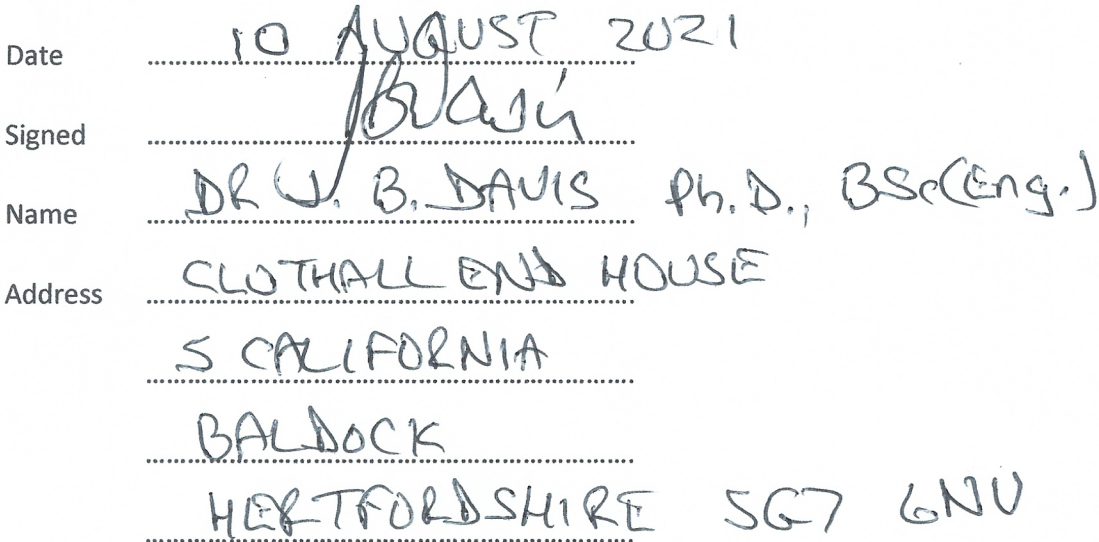 Date 10 AUGUST 2021
Signed
Name DR J. B. DAVIS Ph.D., BSc(Eng.)
Address CLOTHALL END HOUSE
5 CALIFORNIA
BALDOCK
HERTFORDSHIRE SG7 6NU